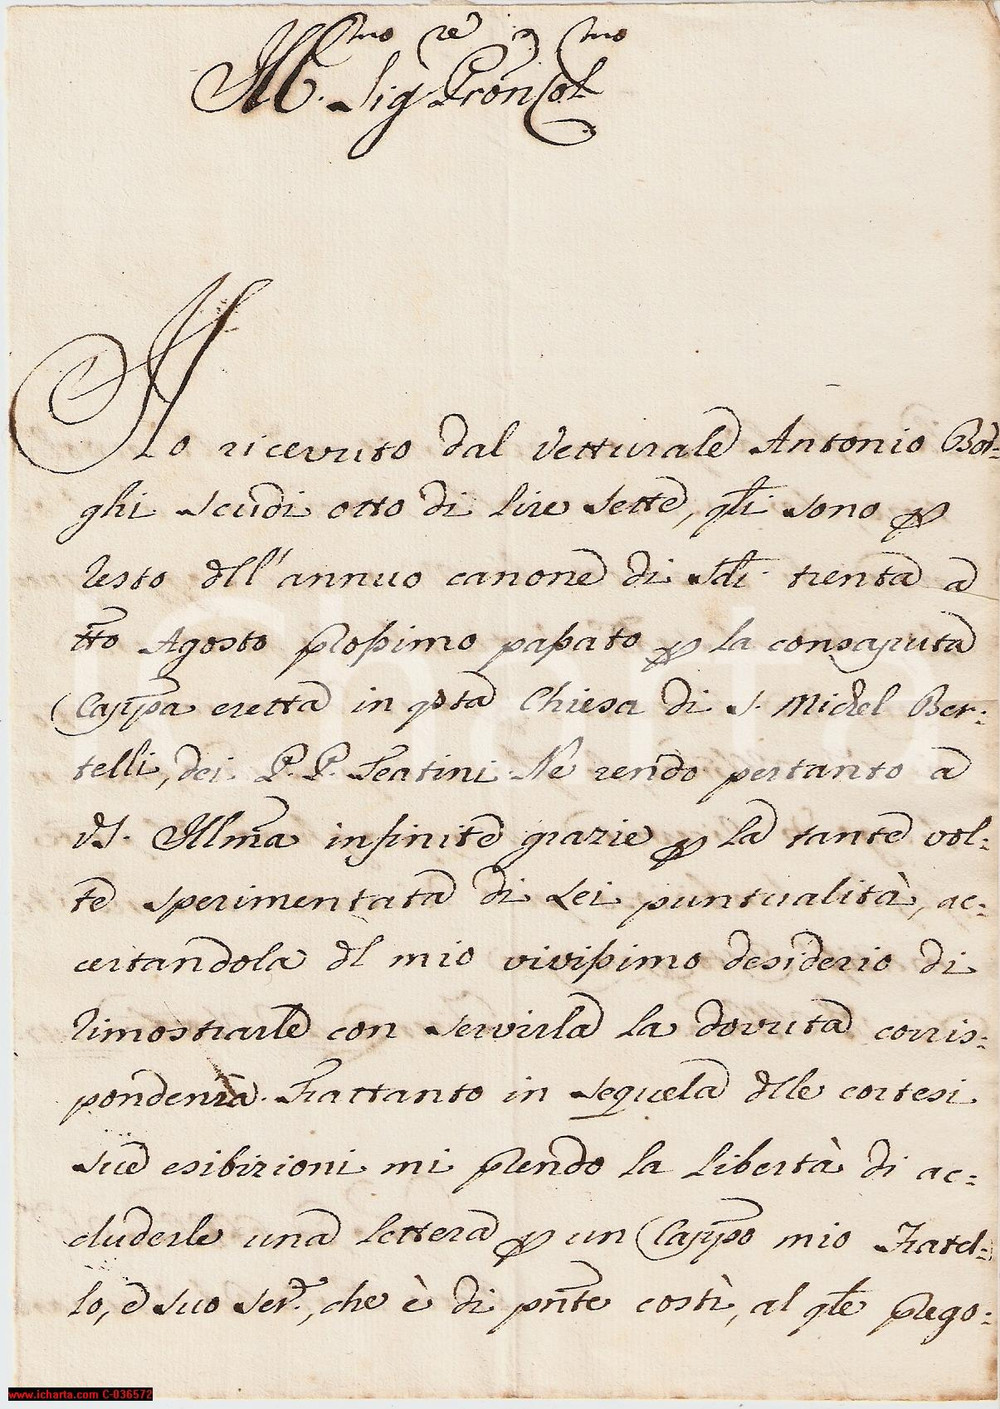 Ill.mo Sig.re Pron Col.mo
Ho ricevuto dal Vetturale Antonio Bor=
ghi scudi otto di lire sette, qli sono p
resto dll'annuo canone di Sdi trenta a
tto Agosto prossimo passato p la consaputa
Cappa eretta in qsta Chiesa di S. Michel Ber=
telli, dei P.P. Teatini. Ne rendo pertanto a
VS. Illma infinite grazie p la tante vol=
te sperimentata di Lei puntualità, ac=
certandola dl mio vivissimo desiderio di
rimostrarle con servirla la dovuta corris=
pondenza. Frattanto in sequela dlle cortesi
sue esibizioni mi prendo la libertà di ac=
cluderle una lettera p un Cappo mio Fratel=
lo, e suo Ser.e, che è di pnte costì, al qle prego=
www.icharta.com C-036572